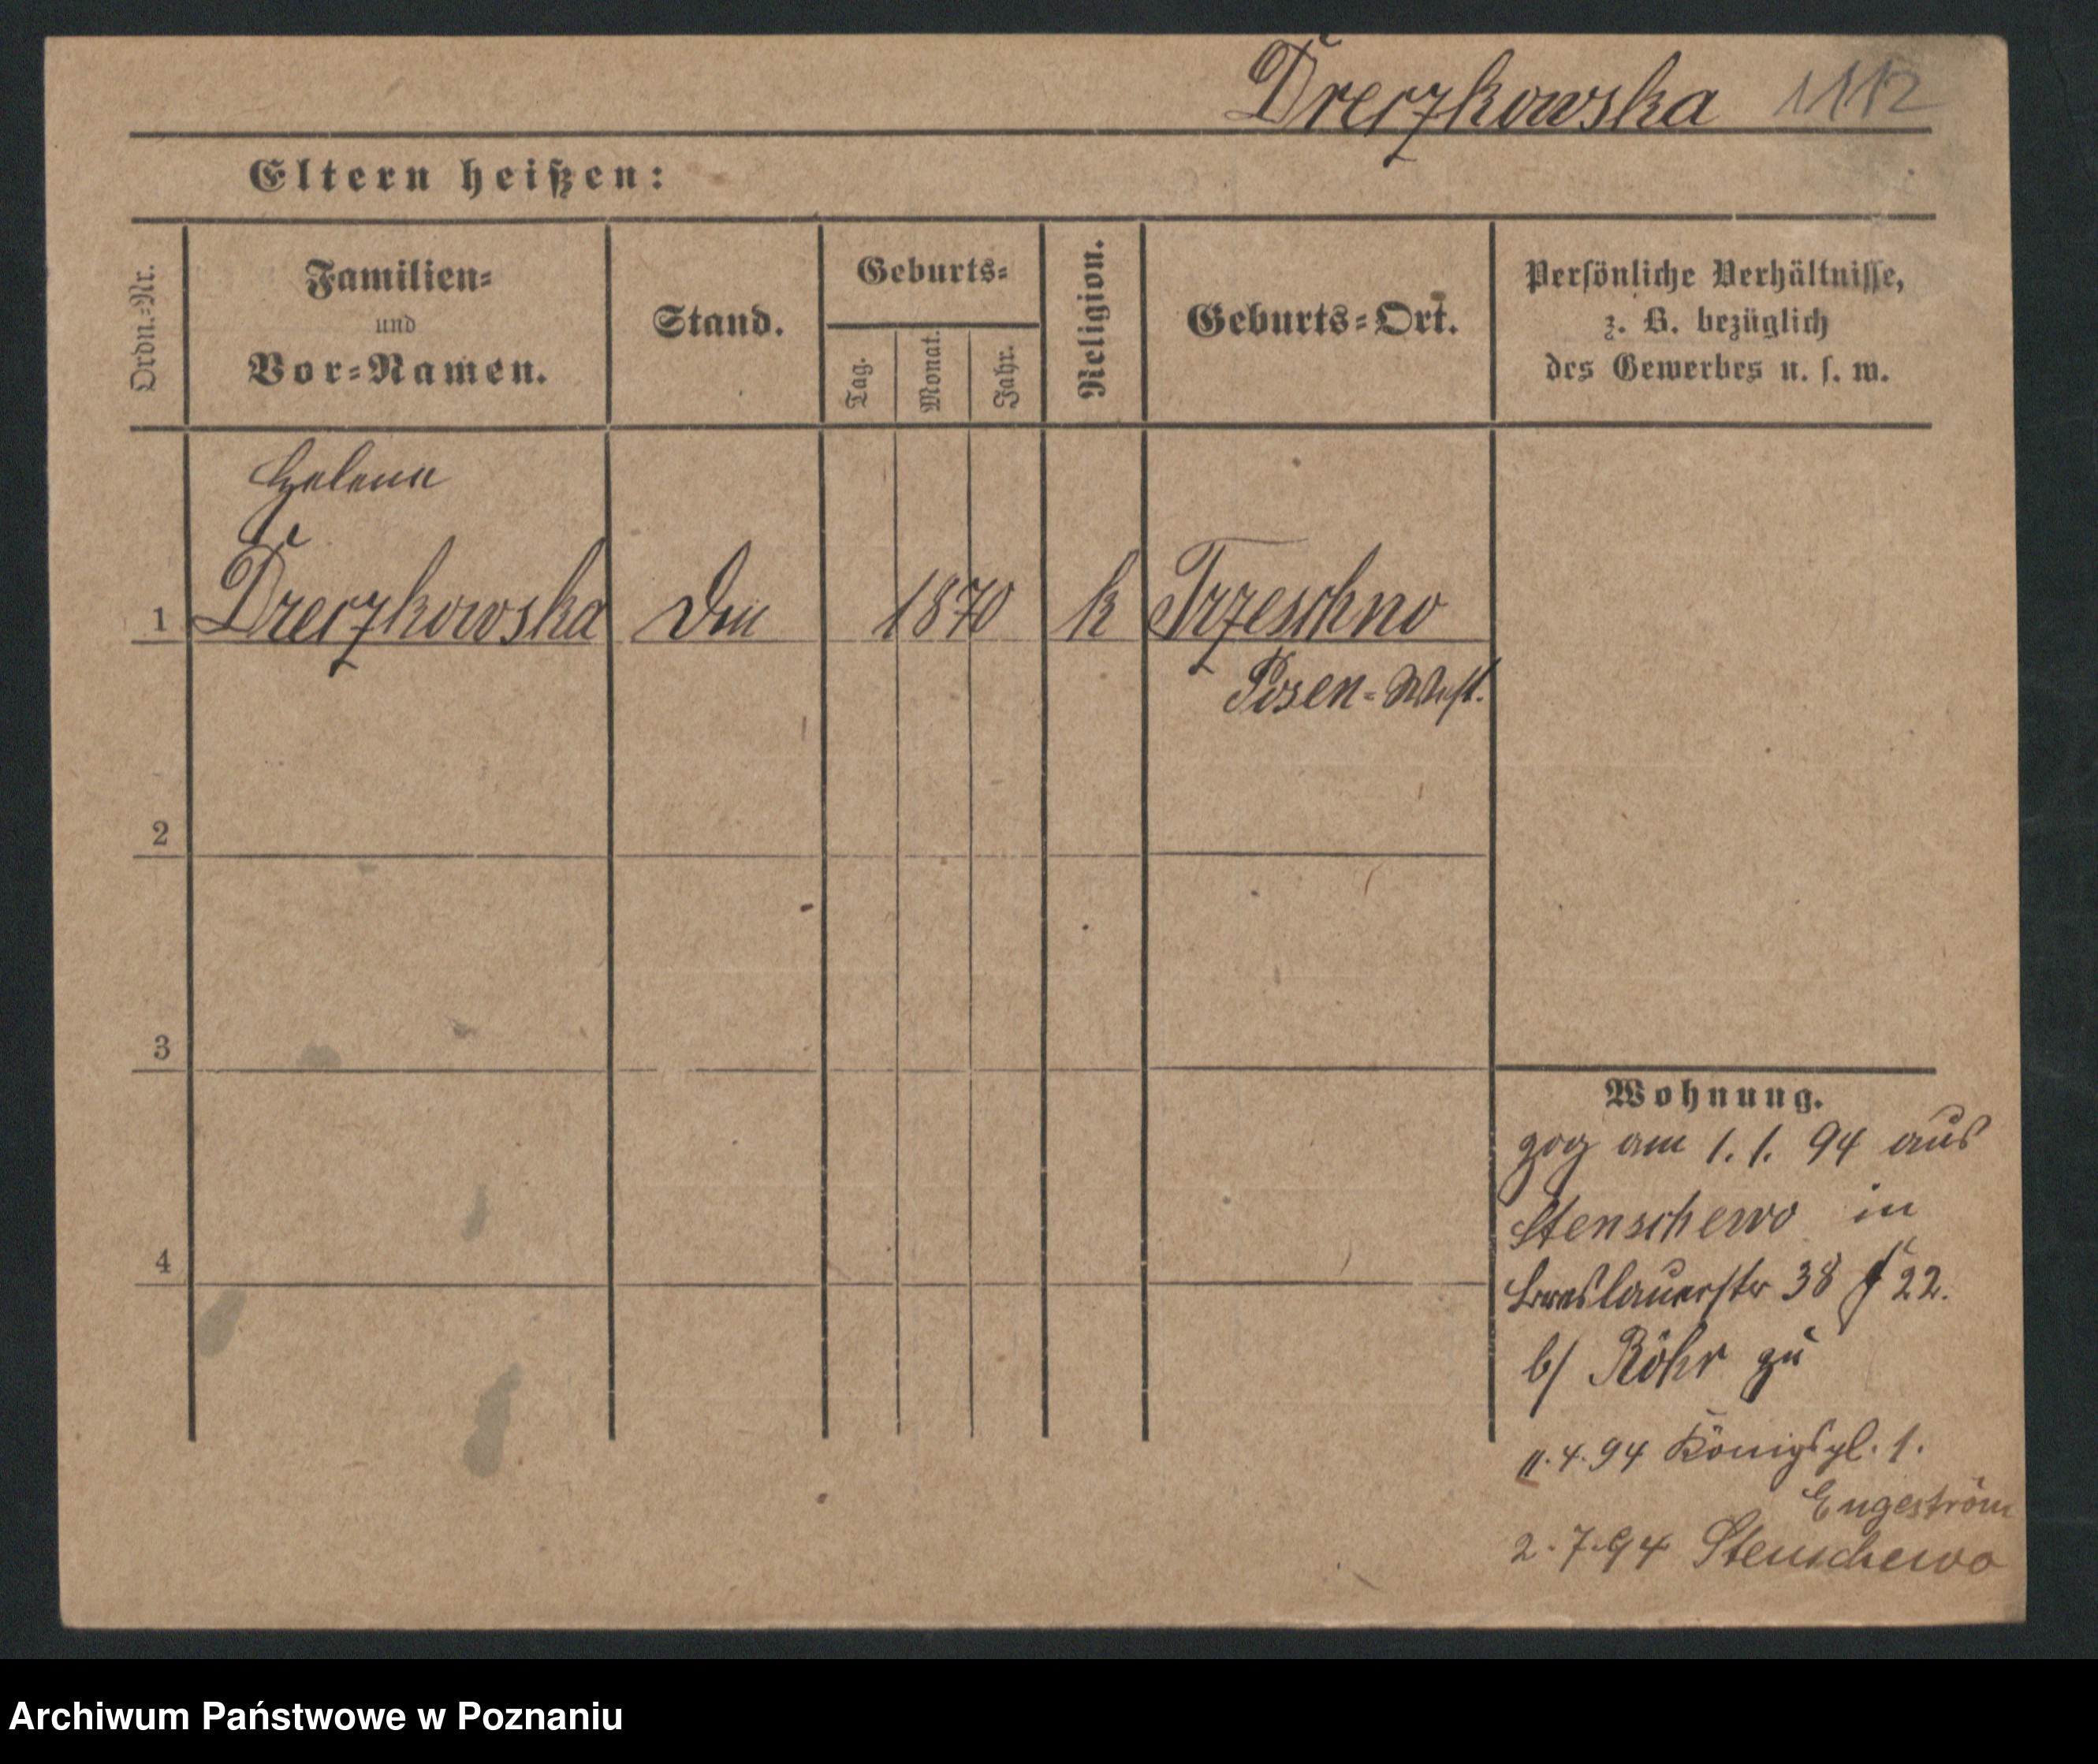 Dreczkowska 1112
Eltern heißen:
Ordn.-Nr.
Familien-
und
Vor-Namen.
Stand.
Geburts-
Tag.
Monat.
Jahr.
Religion.
Geburts-Ort.
Persönliche Verhältnisse,
z. B. bezüglich
des Gewerbes u. s. w.
Helene
1 Dreczkowska 1870 k Trzeschno
Posen-West.
2
3
4
Wohnung.
zog am 1. 1. 94 aus
Stenschewo in
Breslauerstr 38 22.
b/ Röhr zu
11.4.94 Königspl. 1.
Engeström
2.7.94 Stenschewo
Archiwum Państwowe w Poznaniu